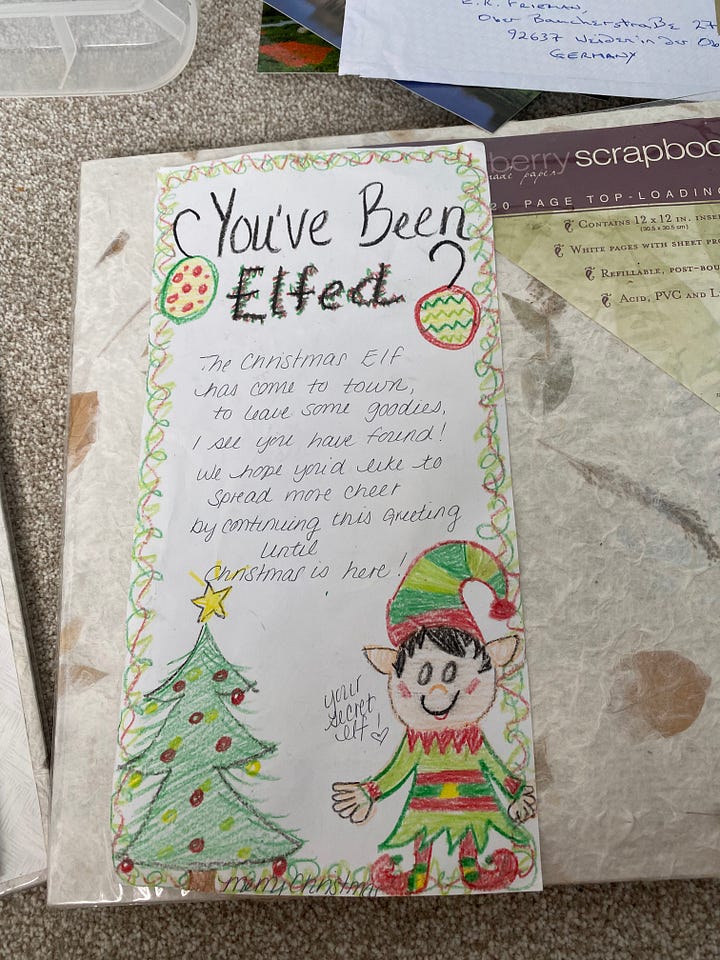 E.R. FRIEMAN,
Ober Baucherstraße 27
92637 Weiden in der Ob
GERMANY
berry scrapboo
made paper
20 PAGE TOP-LOADING
CONTAINS 12 x 12 IN. INSE
(30.5 x 30.5 cm)
WHITE PAGES WITH SHEET PRO
REFILLABLE, POST-BOU
ACID, PVC AND L
You've Been
Elfed
The Christmas Elf
has come to town,
to leave some goodies,
I see you have found!
We hope you'd like to
spread more cheer
by continuing this Greeting
until
Christmas is here!
your
secret
elf!
merry Christma